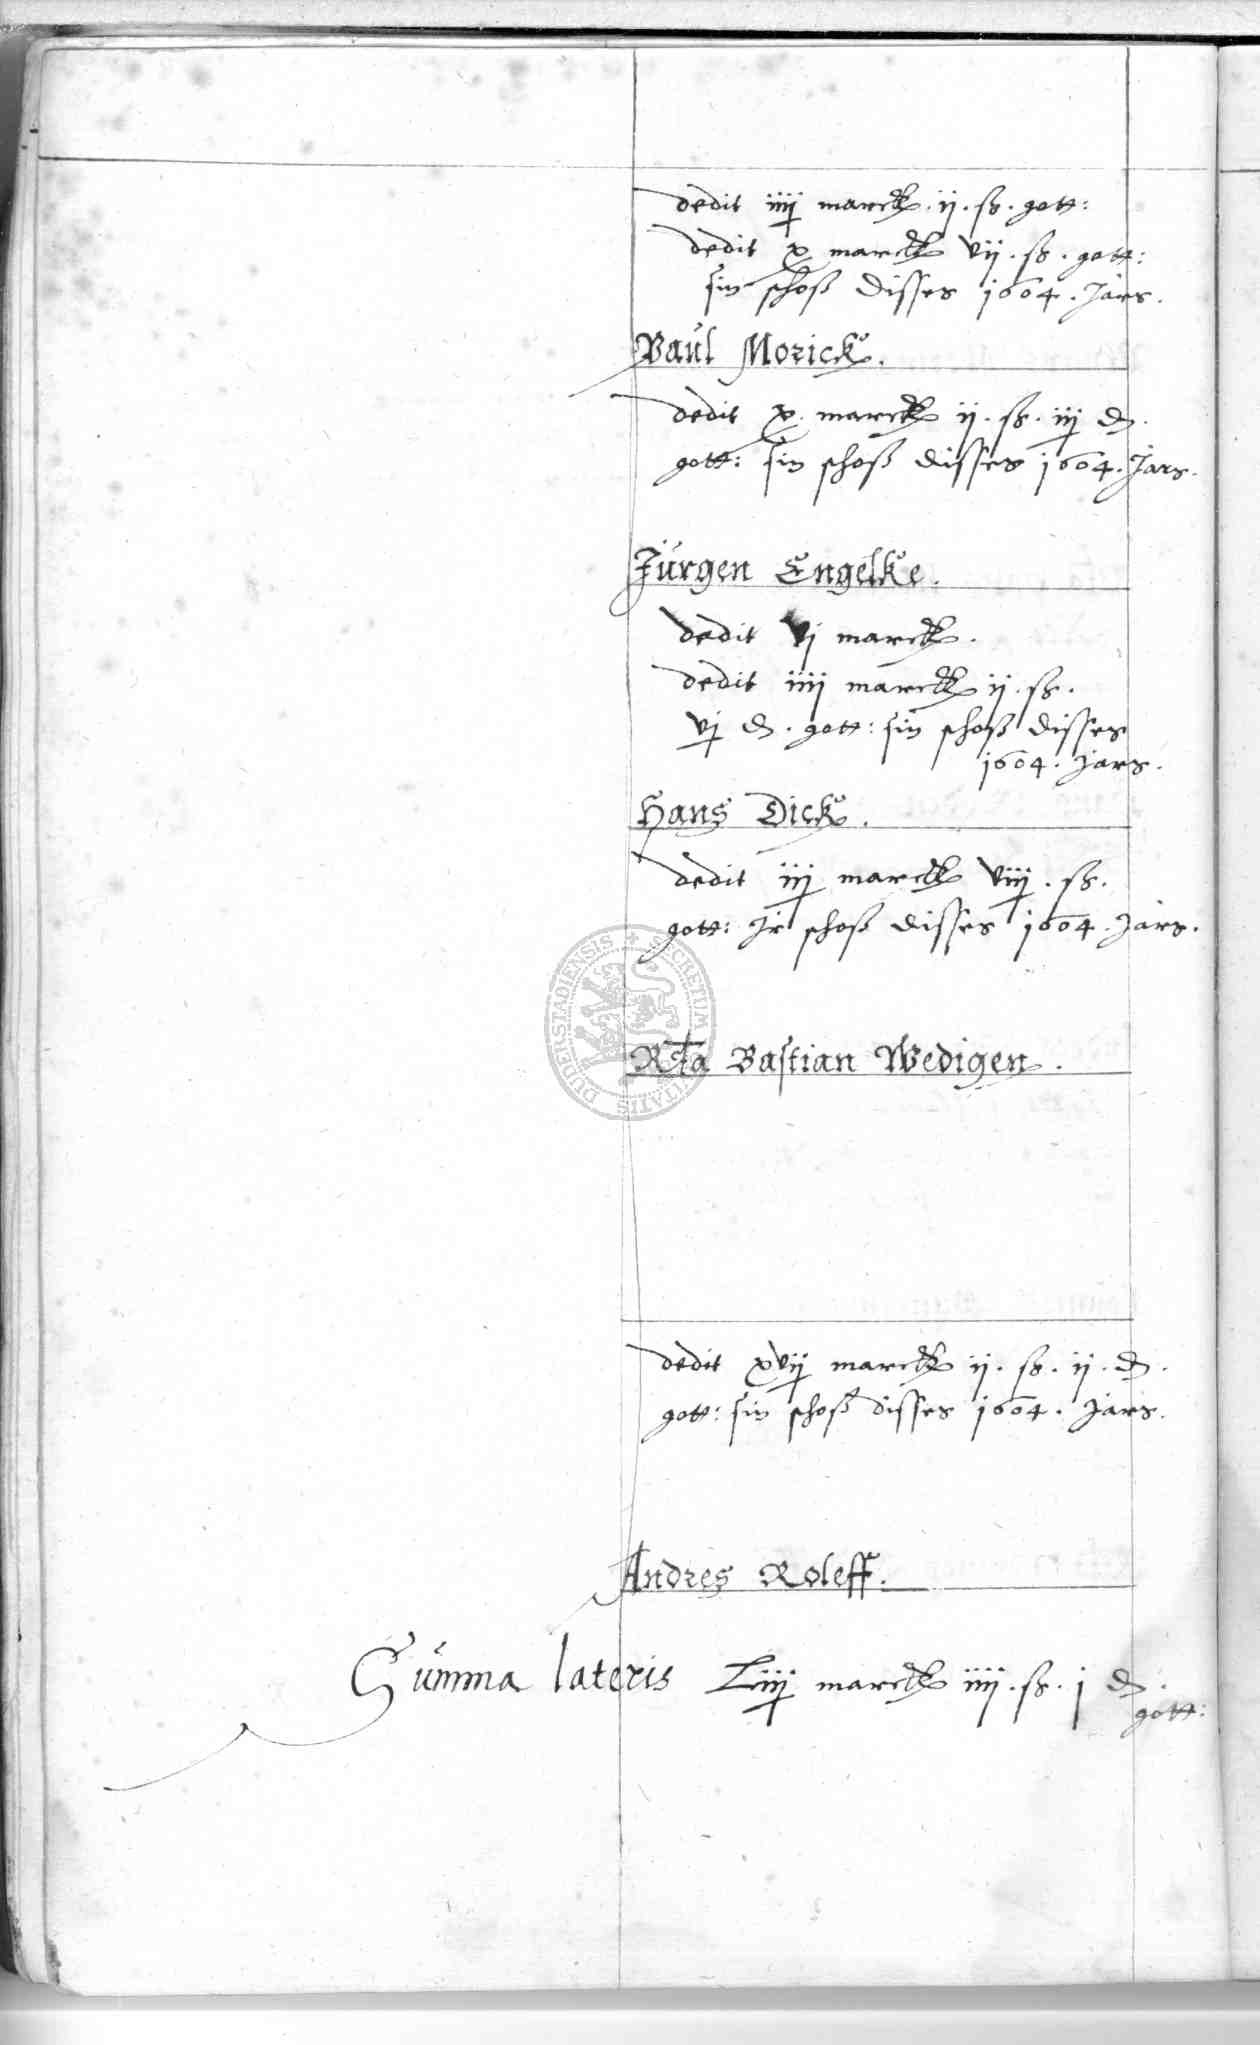 dedit iiij marck . ij . ß . gott:
dedit x marck vij . ß . gott:
sin schoß disses 1604 . Jars .
Paul Morick .
dedit x marck ij . ß . iij d .
gott: sin schoß disses 1604 . Jars .
Jürgen Engelke .
dedit vj marck .
dedit iiij marck ij . ß .
vj d . gott: sin schoß disses
1604 . Jars .
Hans Dick .
dedit iij marck viij . ß .
gott: Jr schoß disses 1604 . Jars .
SECRETUM CIVITATIS DUDERSTADIENSIS
Rta Bastian Wedigen .
dedit xvij marck ij . ß . ij . d .
gott: sin schoß disses 1604 . Jars .
Andres Roleff .
Summa lateris Liiij marck iiij . ß . j d .
gott: